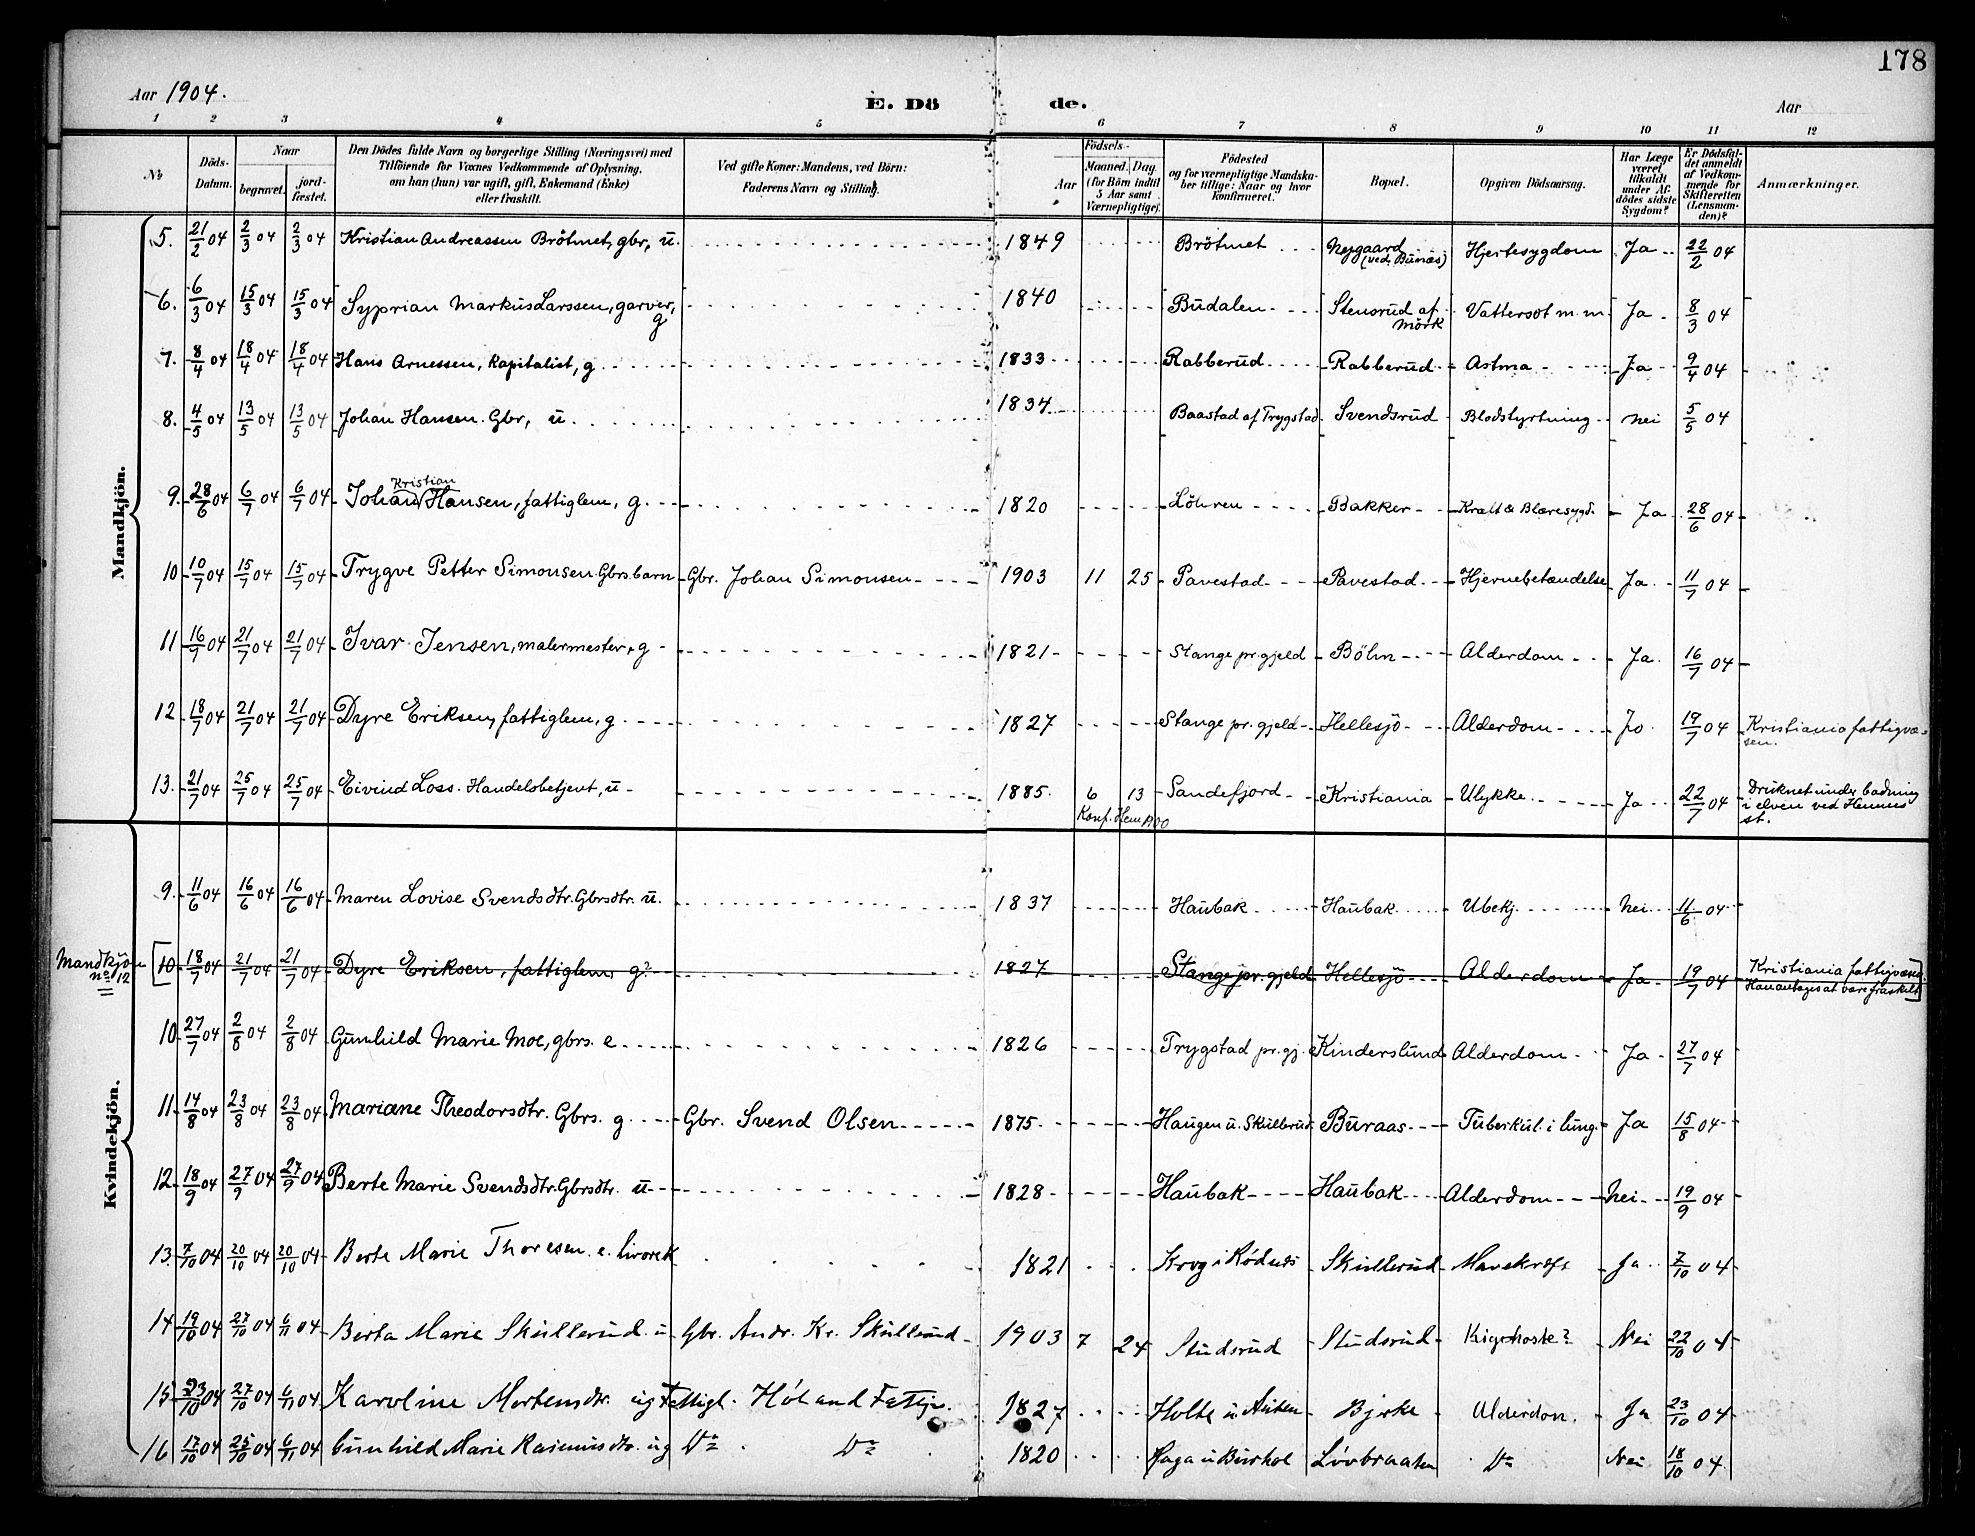 178
Aar 1904. E. Dö de. Aar
1 2 3 4 5 6 7 8 9 10 11 12
No. Döds-Datum. Naar begravet. jord-fæstet. Den Dödes fulde Navn og borgerlige Stilling (Næringsvei) med Tilföiende for Voxnes Vedkommende af Oplysning, om han (hun) var ugift, gift, Enkemand (Enke) eller fraskilt. Ved gifte Koner: Mandens, ved Börn: Faderens Navn og Stilling. Födsels- Aar Maaned. Dag. (for Börn indtil 5 Aar samt Værnepligtige). Födested og for værnepligtige Mandska-ber tillige: Naar og hvor konfirmeret. Bopæl. Opgiven Dödsaarsag. Har Læge været tilkaldt under Af-dödes sidste Sygdom? Er Dödsfal-det anmeldt af Vedkom-mende for Skifteretten (Lensman-den)? Anmærkninger.
Mandkjön.
5. 21/2 04 2/3 04 2/3 04 Kristian Andreassen Brötmet, gbr, u. 1849 Brötmet Nygaard (ved Bunæs) Hjertesygdom Ja 22/2 04
6. 6/3 04 15/3 04 15/3 04 Syprian Markus Larssen, garver, g 1840 Budalen Stensrud af Mörk Vattersot m.m. Ja 8/3 04
7. 8/4 04 18/4 04 18/4 04 Hans Arnessen, kapitalist, g 1833 Rabberud Rabberud Astma Ja 9/4 04
8. 4/5 04 13/5 04 13/5 04 Johan Hansen. Gbr, u. 1834 Baastad af Trygstad Svendsrud Blodstyrtning nei 5/5 04
9. 28/6 04 6/7 04 6/7 04 Johan Kristian Hansen, fattiglem, g. 1820 Löhren Bakker Kræft & Blæresygd. Ja 28/6 04
10 10/7 04 15/7 04 15/7 04 Trygve Petter Simonsen Gbrs. barn Gbr. Johan Simonsen 1903 11 25 Pavestad Pavestad Hjernebetændelse Ja 11/7 04
11 16/7 04 21/7 04 21/7 04 Ivar Jensen, malermester, g 1821 Stange pr.gjeld Bölm Alderdom Ja. 16/7 04
12 18/7 04 21/7 04 21/7 04 Dyre Eriksen, fattiglem, g 1827 Stange pr. gjeld Hellesjö Alderdom Ja 19/7 04 Kristiania fattigvæ-sen.
13. 21/7 04 25/7 04 25/7 04 Eivind Loss. Handelsbetjent, u 1885. 6 13 Konf. Hem 1900 Sandefjord Kristiania Ulykke Ja 22/7 04 Druknet under badning i elven ved Hemnes st.
Kvindekjön.
9. 11/6 04 16/6 04 16/6 04 Maren Lovise Svendsdtr. Gbrsdtr. u. 1837 Haubak Haubak Ubekj. Nei 11/6 04
Mandkjön no 12 [10 18/7 04 21/7 04 21/7 04 Dyre Eriksen, fattiglem g? 1827 Stange pr. gjeld Hellesjö Alderdom Ja 19/7 04 Kristiania fattigvæsen Han antages at være fraskilt]
10 27/7 04 2/8 04 2/8 04 Gunhild Marie Moe, gbrs. e 1826 Trygstad pr. gj. Kinderslund Alderdom Ja 27/7 04
11 14/8 04 23/8 04 23/8 04 Mariane Theodorsdtr. Gbrs. g Gbr. Svend Olsen 1875 Haugen u. Skullerud Buraas Tuberkul. i lung. Ja 15/8 04
12 18/9 04 27/9 04 27/9 04 Berte Marie Svendsdtr. Gbrsdtr. u 1828 Haubak Haubak Alderdom Nei 19/9 04
13. 7/10 04 20/10 04 20/10 04 Berte Marie Thoresen. e. 1821 Krog i Rödnes Skullerud Mavekræft Ja 7/10 04
14 19/10 04 27/10 04 6/11 04 Berta Marie Skullerud. u Gbr. Andr. Kr. Skullerud 1903 7 24 Studsrud Studsrud Kighoste? Nei 22/10 04
15 23/10 04 27/10 04 6/11 04 Karoline Mortensdtr. ug Fattigl. Höland Fattigv. 1827 Holte u Bjerke Alderdom. Ja 23/10 04
16 17/10 04 25/10 04 6/11 04 Gunhild Marie Rasmusdtr. ug Do Do 1820 Haga u Lövbraaten Do Nei 18/10 04